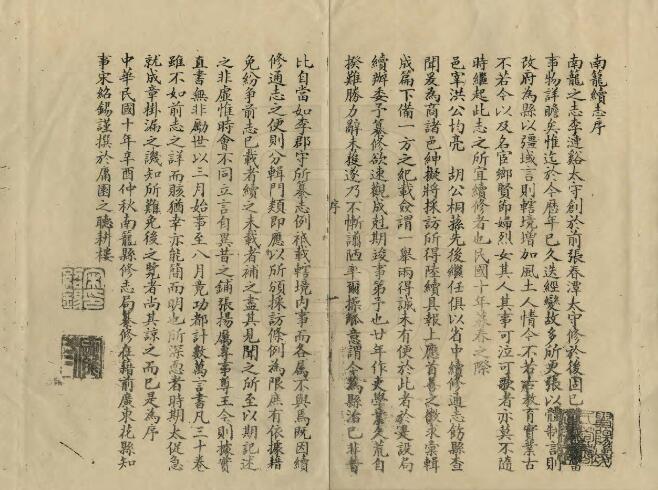 南籠續志序
南籠之志李連谿太守創於前張春潭太守修於後固已
事物詳瞻矣惟迄於今歷年已久迭經變故多所更張以
改府為縣以疆域言則轄境增加風土人情今不若古教育實業古
不若今以及名宦鄉賢節婦烈女其人其事可泣可歌者亦莫不隨
時繼起此志之所宜續修者也民國十年暮春之際
邑宰洪公灼亮 胡公桐蓀先後繼任俱以省中續修通志飭縣查
聞爰為商諸邑紳擬將採訪所得陸續具報上應首善之徵求彙輯
成篇下備一方之紀載僉謂一舉兩得誠未有便於此者於是設局
續辦委予纂修欲速觀成尅期竣事第予也廿年作吏學業久荒自
揆難勝力辭未獲遂乃不慚譾陋率爾操觚意謂今為縣治已非昔
比自當如李郡守所纂志例祇載轄境内事而各屬不與焉既因續
修通志之便則分輯門類即應以所頒採訪條例為限庶有依據藉
免紛爭前志已載者續之未載者補之盡其見聞之所至以期記述
之非虛惟時會不同立言自異昔之鋪張揚厲專事尊王今則據實
直書無非勵世以三月始事至八月竟功都計數萬言書凡二十卷
雖不如前志之詳而賅猶幸亦能簡而明也所深愈者時期太促急
就成章掛漏之譏知所難免後之覽者尚其諒之而已是為序
中華民國十年辛酉仲秋南籠縣修志局纂修在籍前廣東花縣知
事宋紹錫謹撰於屬園之聽耕樓